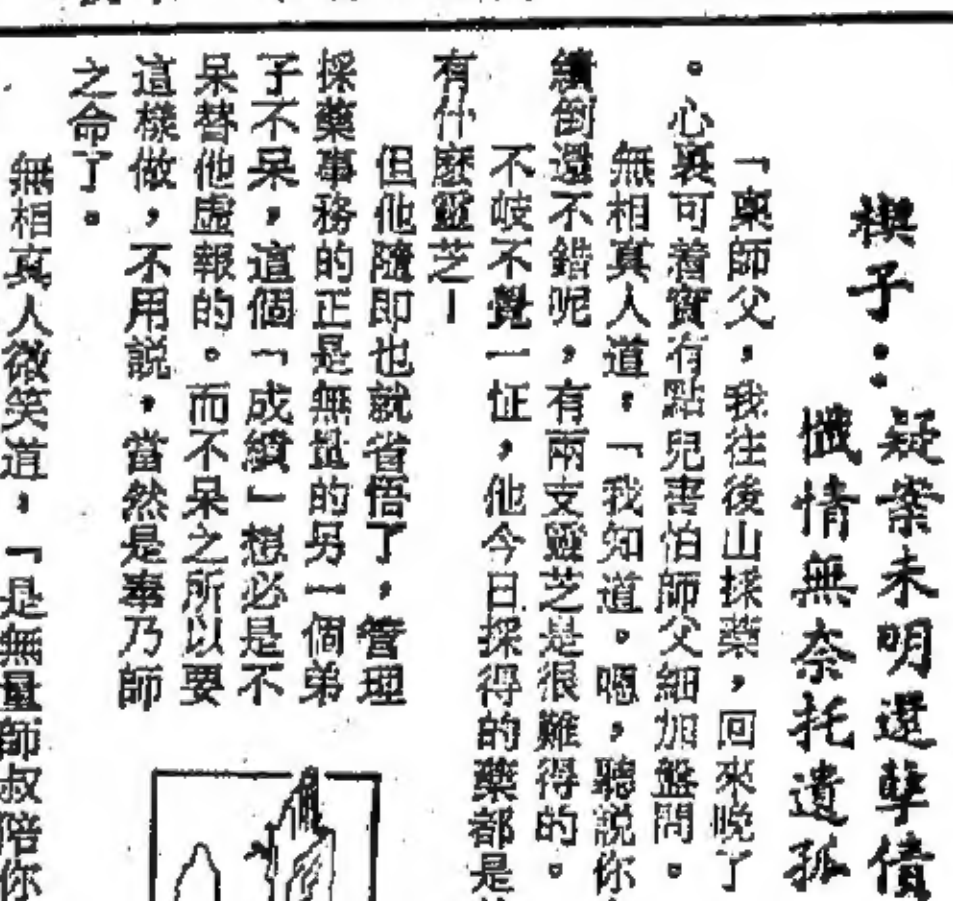 楔子：
疑案未明還孽債
懺情無奈托遺孤
「稟師父，我往後山採藥，回來晚了
。心裏可着實有點兒害怕師父細加盤問。
無相真人道，「我知道。嗯，聽説你
績倒還不錯呢，有兩支靈芝是很難得的。
不岐不覺一怔，他今日採得的藥都是
有什麼靈芝－
但他隨即也就省悟了，管理
採藥事務的正是無量的另一個弟
子不呆，這個「成績」想必是不
呆替他虛報的。而不呆之所以要
這樣做，不用説，當然是奉乃師
之命了。
無相真人微笑道，「是無量師叔陪你